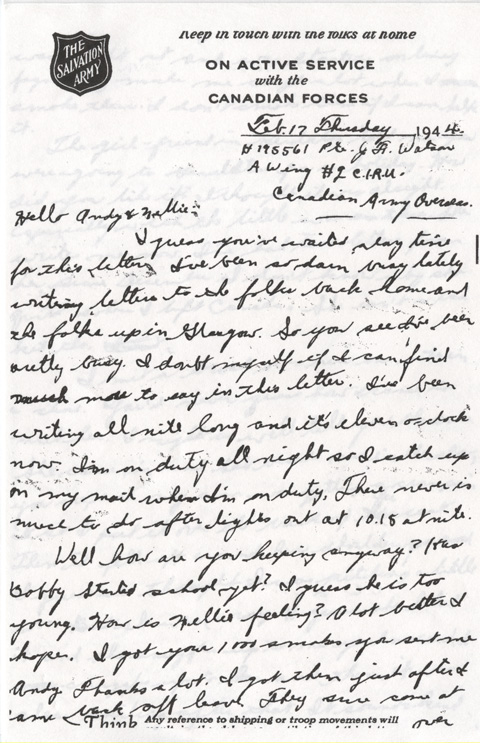 THE
SALVATION
ARMY
Keep in touch with the folks at home
ON ACTIVE SERVICE
with the
CANADIAN FORCES
Feb. 17 Thursday, 1944.
H195561 Pte. J. A. Watson
A Wing #2 C.I.R.U.
Canadian Army Overseas.
Hello Andy & Nellie:-
I guess you've waited a long time
for this letter. I've been so darn busy lately
writing letters to the folks back home and
the folks up in Glasgow. So you see I've been
pretty busy. I doubt myself if I can find
much more to say in this letter. I've been
writing all nite long and it's eleven o-clock
now. I'm on duty all night so I catch up
on my mail when I'm on duty. There never is
much to do after lights out at 10.15 at nite.
Well how are you keeping anyway? Has
Bobby started school yet? I guess he is too
young. How is Nellie feeling? A lot better I
hope. I got your 1000 smokes you sent me
Andy Thanks a lot. I got them just after I
came back off leave. They sure come at
Think Any reference to shipping or troop movements will
over